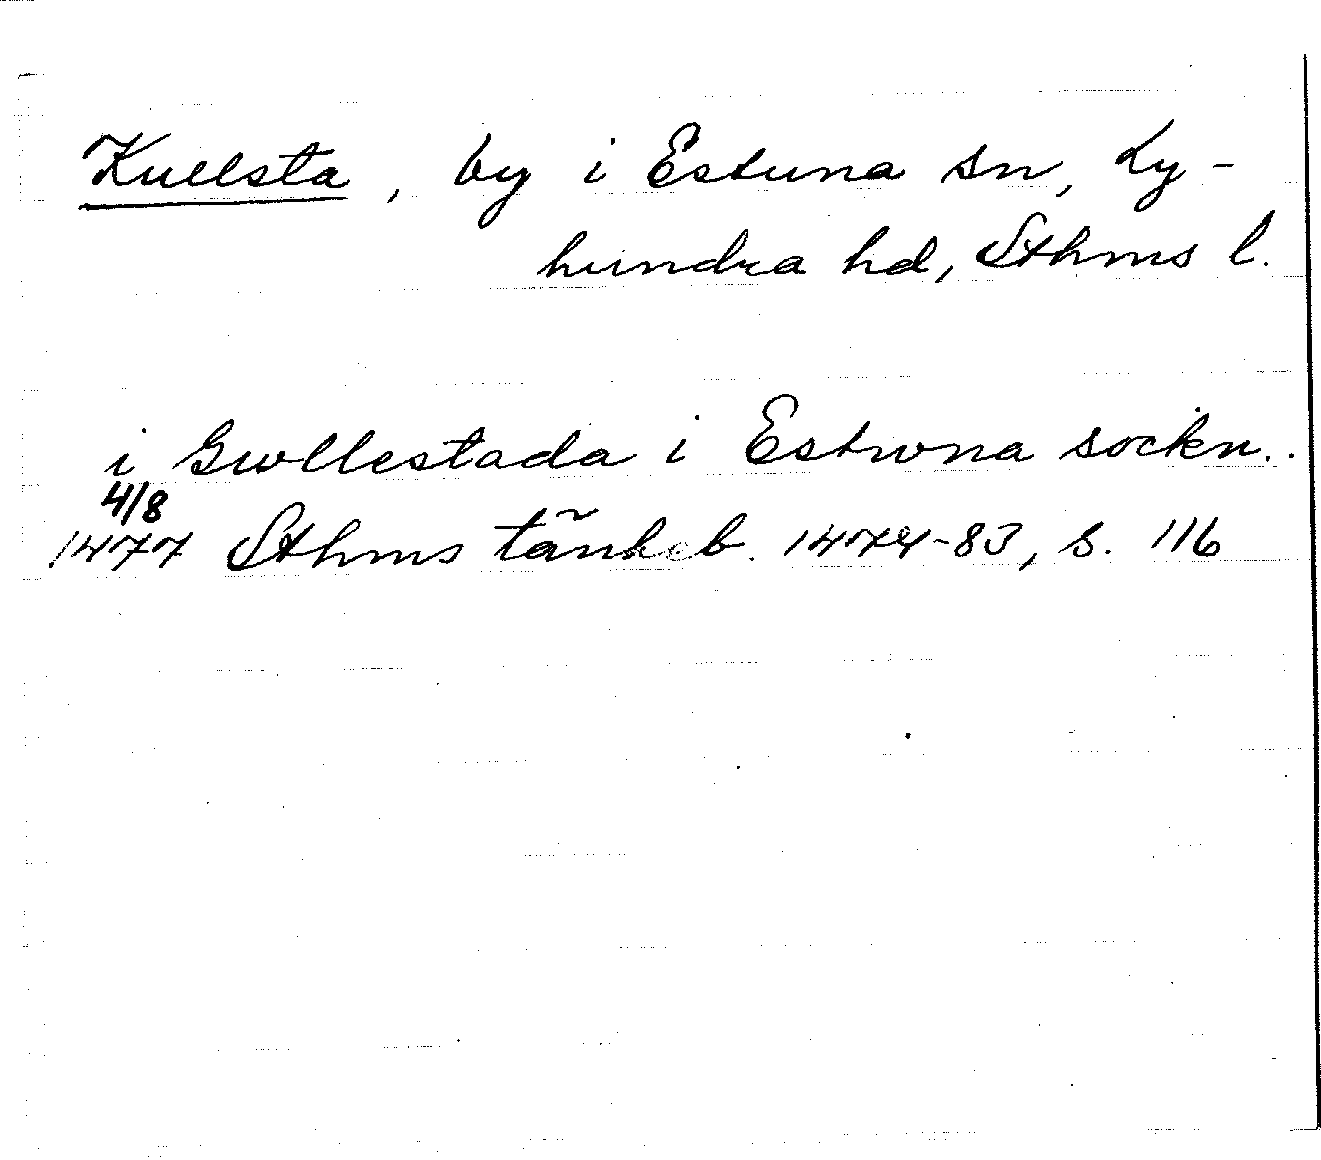 Kullsta, by i Estuna sn, Ly-
hundra hd, Sthms l.
i Gwllestada i Estwna sockn..
4/8
1477 Sthms tänkeb. 1474-83, s. 116